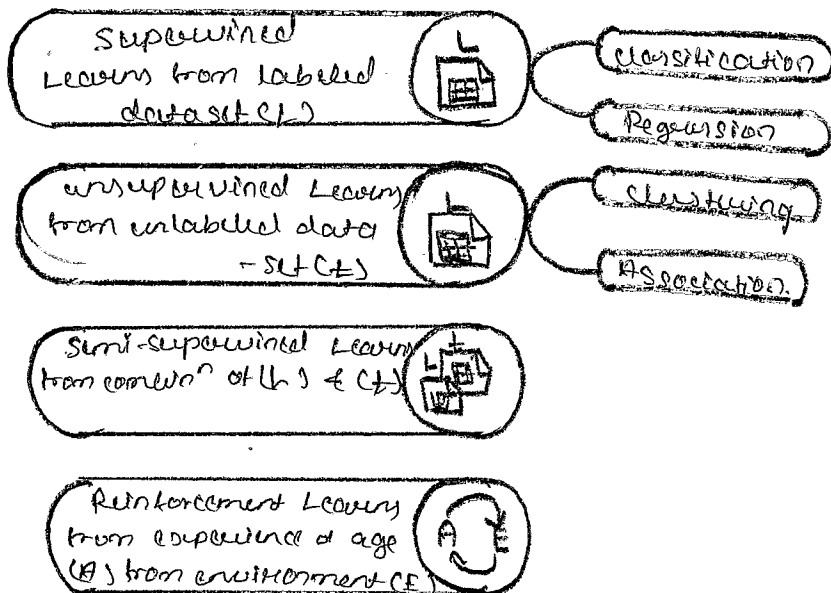 Supervised
Learns from labeled
dataset (L)
L
Classification
Regression
Unsupervised Learns
from unlabeled data
-set (Ł)
Ł
Clustering
Association.
Semi-supervised Learns
from combinⁿ of (L) & (Ł)
L Ł
Reinforcement Learns
from experience of age
(A) from environment (E)
A
E